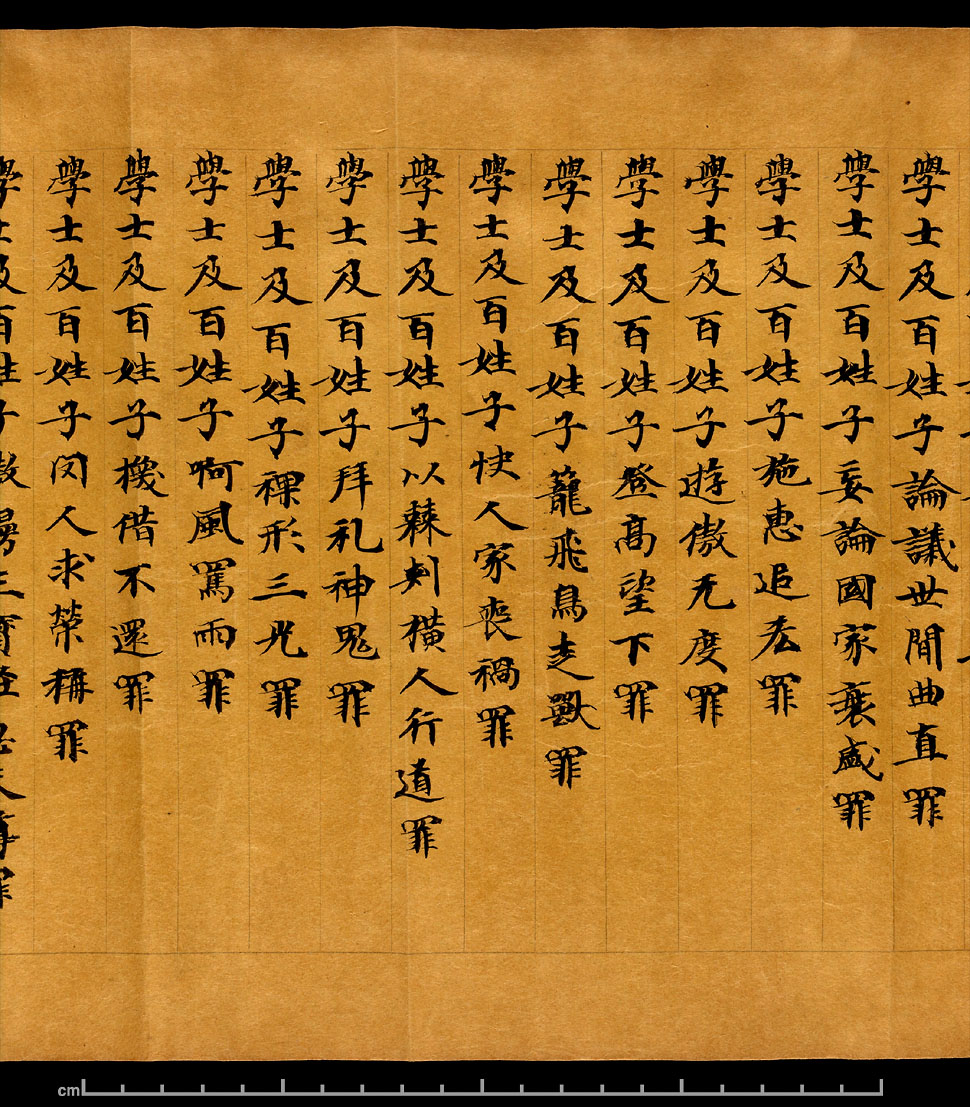 學士及百姓子論議世間曲直罪
學士及百姓子妄論國家衰盛罪
學士及百姓子施惠追恡罪
學士及百姓子遊慠无度罪
學士及百姓子登高望下罪
學士及百姓子籠飛鳥走獸罪
學士及百姓子快人家喪禍罪
學士及百姓子以棘刺橫人行道罪
學士及百姓子拜礼神鬼罪
學士及百姓子裸形三光罪
學士及百姓子呵風罵雨罪
學士及百姓子換借不還罪
學士及百姓子因人求榮稱罪
學士及百姓子